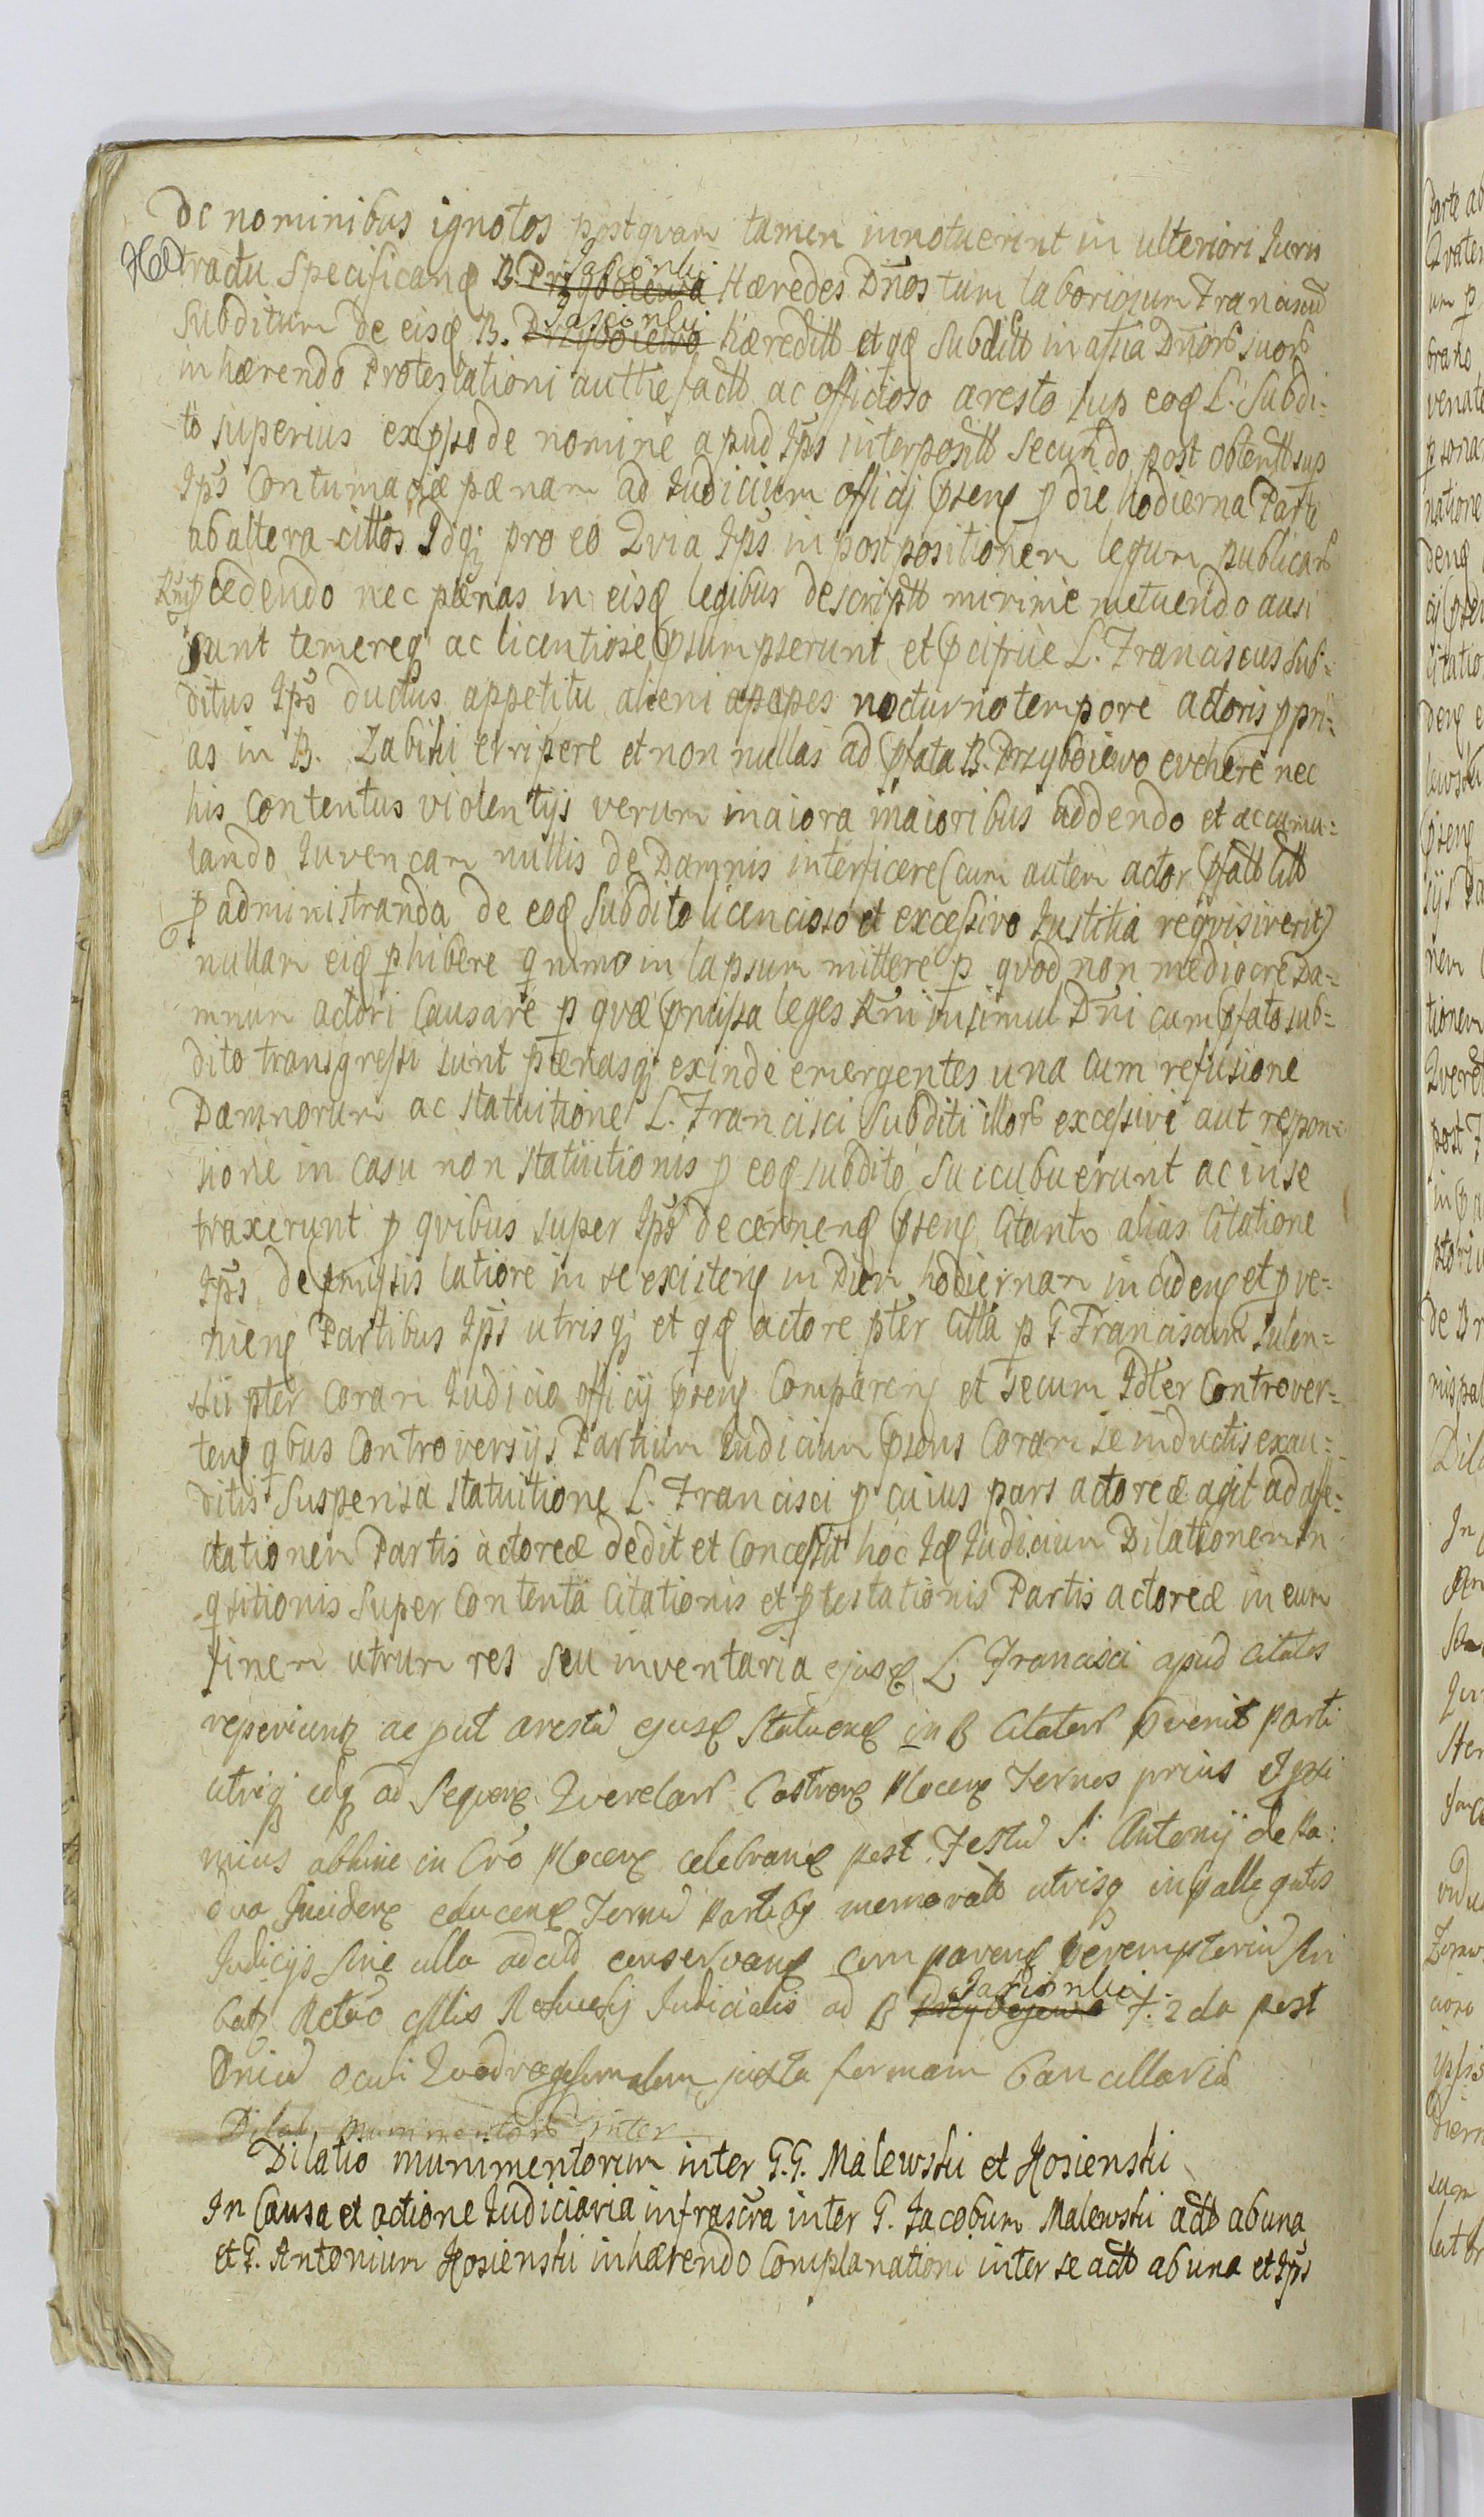 de nominibus ignotos postquam tamen innotuerint in ulteriori Iuris
tractu specificanq B. Przyboiewa Jasionki Hæredes Dños tum laboriosum Franciscũ
Subditum de eisq B. Przyboiewo Jasionki hæreditt et qq subditt in assia Dnor suor
inhærendo Protestationi authe factt ac officioso aresto sup eoq L. Subdi=
to superius expsso de nomine apud Ips interpositt secundo post obtentt sup
Ips Contumaciæ pænam ad Iudicium officij psenq p die hodierna Parte
ab altera cittos Idq; pro eo Qvia Ips in postpositionem legum publicar
Rni cedendo nec pænas in eisq legibus descriptt minime metuendo ausi
sunt temereq ac licentiose psumpserunt et pcipue L. Franciscus Sub=
ditus Ips ductus appetitu alieni apes nocturno tempore actoris ppri=
as in B. Zabiki erripere et non nullas ad pfata B. Przyboiewo evehere nec
his Contentus violentijs verum maiora maioribus addendo et accumu=
lando Iuvencam nullis de Damnis interficere (cum autem actor pfatt citt
p administranda de eoq Subdito licencioso et excessivo Iustitia reqvisiverit)
nullam eiq phibere qnimo in lapsum mittere p qvod non mediocre Da=
mnum actori Causare p qvæ pmissa leges Rni insimul Dni cum pfato sub=
dito transgressi sunt pænasq; exinde emergentes una cum refusione
Damnorum ac statuitione L. Francisci Subditi illor excessivi aut respon=
sione in casu non statuitionis p eoq subdito succubuerunt ac in se
traxerunt p qvibus super Ips decernenq psenq Citanto alias Citatione
Ips de pmissis latiore in se existenq in Diem hodiernam incidenq et pve=
nienq Partibus Ips utrisq; et qq actore pter citta p G. Franciscum Sulen=
ski pter Coram Iudicio officij psenq Comparenq et secum Idter Controver=
tenq qbus Controversijs Partium Iudicium psens Coram se inductis exau=
ditis Suspensa statuitione L. Francisci p cuius pars actorea agit ad affe=
ctationem Partis actoreæ dedit et Concessit hoc Iq Iudicium Dilationem In
qsitionis Super Contenta Citationis et ptestationis Partis actoreæ in eum
finem utrum res seu inventaria ejusq L. Francisci apud Citatos
reperiunt ac put arestũ ejusq Statuenq in B Citator pvenit parti
utriq; edq ad Sequenq Qverelar Castrenq Plocenq Termos prius et pxi
mius abhinc in Cro Plocenq celebranq post Festũ S. Antonij de Pa:
dua Incidenq educenq Termũ Partibq memoratt utrisq in pallegatis
Judicijs sine ulla adcitt conservanq comparenq peremptoriũ
batz B Jasionki Przybojewo F. 2da post
Dnicũ Oculi Qvadragesimalem juxta formam Cancellariæ
Dilat munimentor inter
Dilatio munimentorum inter G.G. Malewski et Kosienski
In Causa et actione Iudiciaria infrascra inter G. Jacobum Malewski actt ab una
et G. Antonium Kosienski inhærendo Complanationi inter se actt ab una et Ips